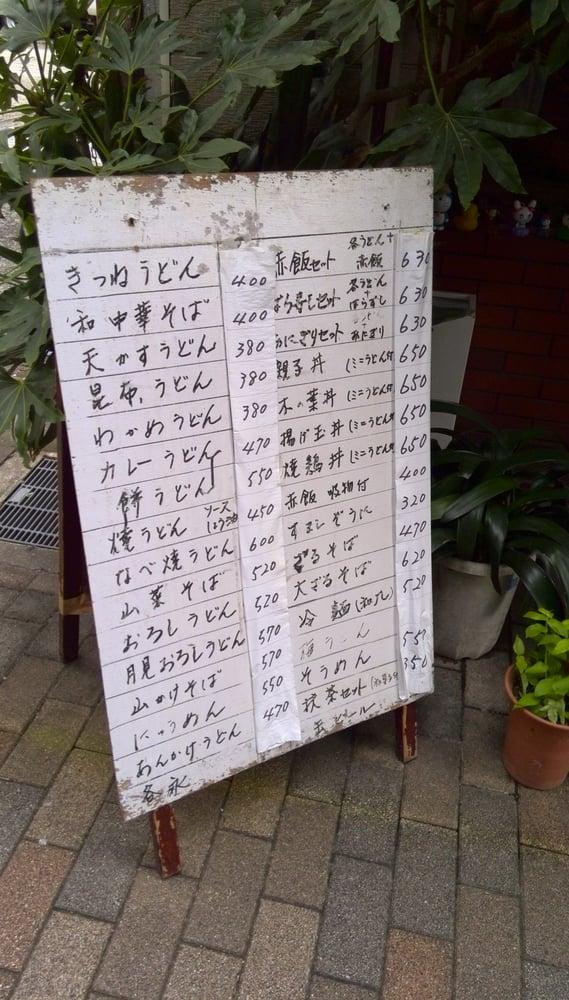 きつねうどん 400
和中華そば 400
天かすうどん 380
昆布うどん 380
わかめうどん 380
カレーうどん 470
餅うどん 550
焼うどん ソース しょうゆ 450
なべ焼うどん 600
山菜そば 520
おろしうどん 520
月見おろしうどん 570
山かけそば 570
にゅうめん 550
あんかけうどん 470
各氷
赤飯セット 各うどん+赤飯 630
ばら寿しセット 各うどん+ばらずし 630
おにぎりセット おにぎり 630
親子丼 (ミニうどん付 650
木の葉丼 (ミニうどん付 650
揚げ玉丼 (ミニうどん付 650
焼鶏丼 (ミニうどん付 650
赤飯 吸物付 400
すましぞうに 320
ざるそば 470
大ざるそば 620
冷麺(和風) 520
そうめん 550
抹茶セット 350
ビール